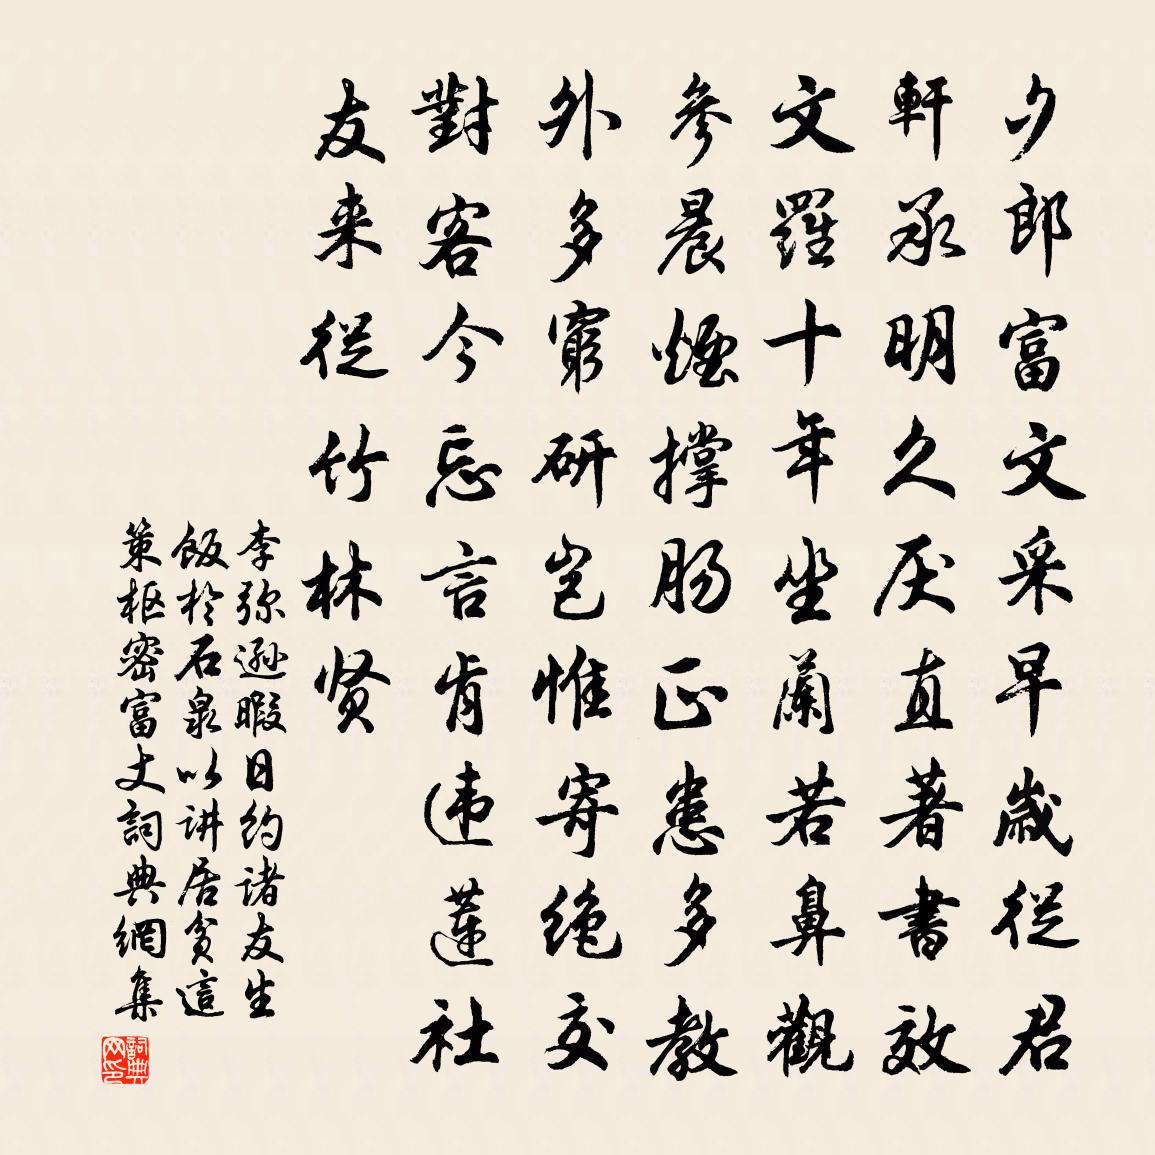 夕郎富文采早歲從君
軒承明久厌直著書效
文羅十年坐蘭若鼻觀
參晨煙撑肠正患多教
外多窮研岂惟寄绝交
對客今忘言肯违蓮社
友来從竹林贤
李弥遜暇日約諸友生
飯於石泉以讲居贫這
策枢密富丈詞典網集
詞典网印